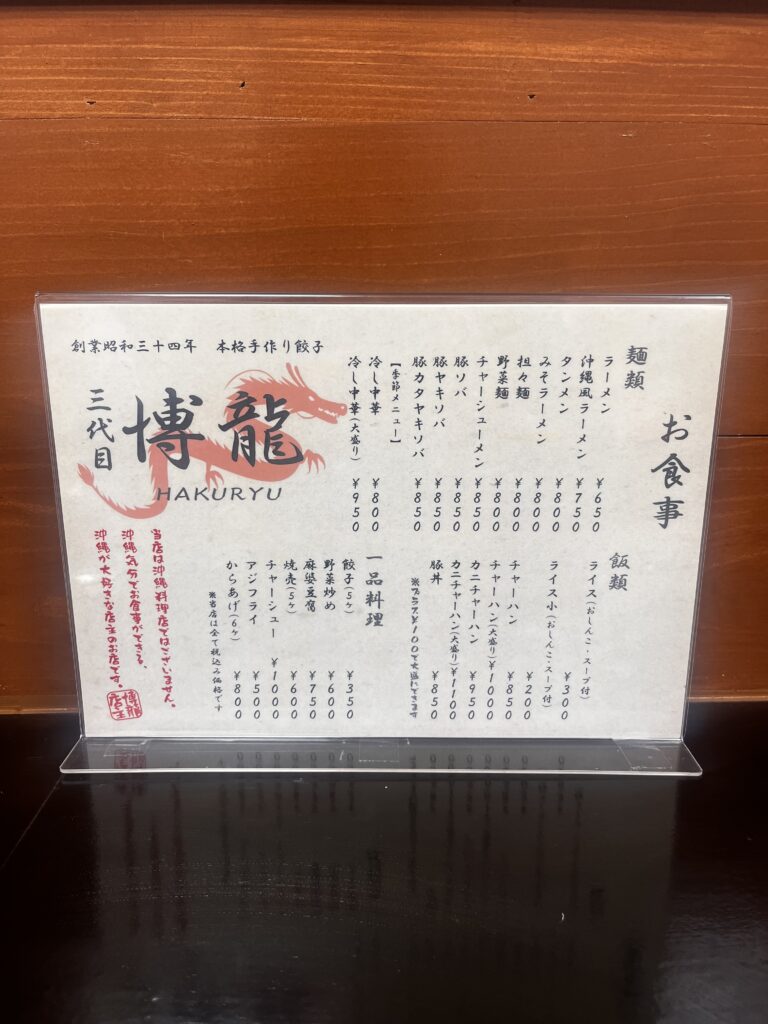 お食事
麺類
ラーメン ¥650
沖縄風ラーメン ¥750
タンメン ¥800
みそラーメン ¥800
担々麺 ¥800
野菜麺 ¥800
チャーシューメン ¥850
豚ソバ ¥850
豚ヤキソバ ¥850
豚カタヤキソバ ¥850
【季節メニュー】
冷し中華 ¥800
冷し中華(大盛り) ¥950
飯類
ライス(おしんこ・スープ付) ¥300
ライス小(おしんこ・スープ付) ¥200
チャーハン ¥850
チャーハン(大盛り) ¥1000
カニチャーハン ¥950
カニチャーハン(大盛り) ¥1100
豚丼 ¥850
※プラス¥100で大盛にできます
一品料理
餃子(5ヶ) ¥350
野菜炒め ¥600
麻婆豆腐 ¥750
焼売(5ヶ) ¥600
チャーシュー ¥1000
アジフライ ¥500
からあげ(6ヶ) ¥800
※当店は全て税込み価格です
創業昭和三十四年 本格手作り餃子
三代目
博龍
HAKURYU
当店は沖縄料理店ではございません。
沖縄気分でお食事ができる、
沖縄が大好きな店主のお店です。
博龍
店主